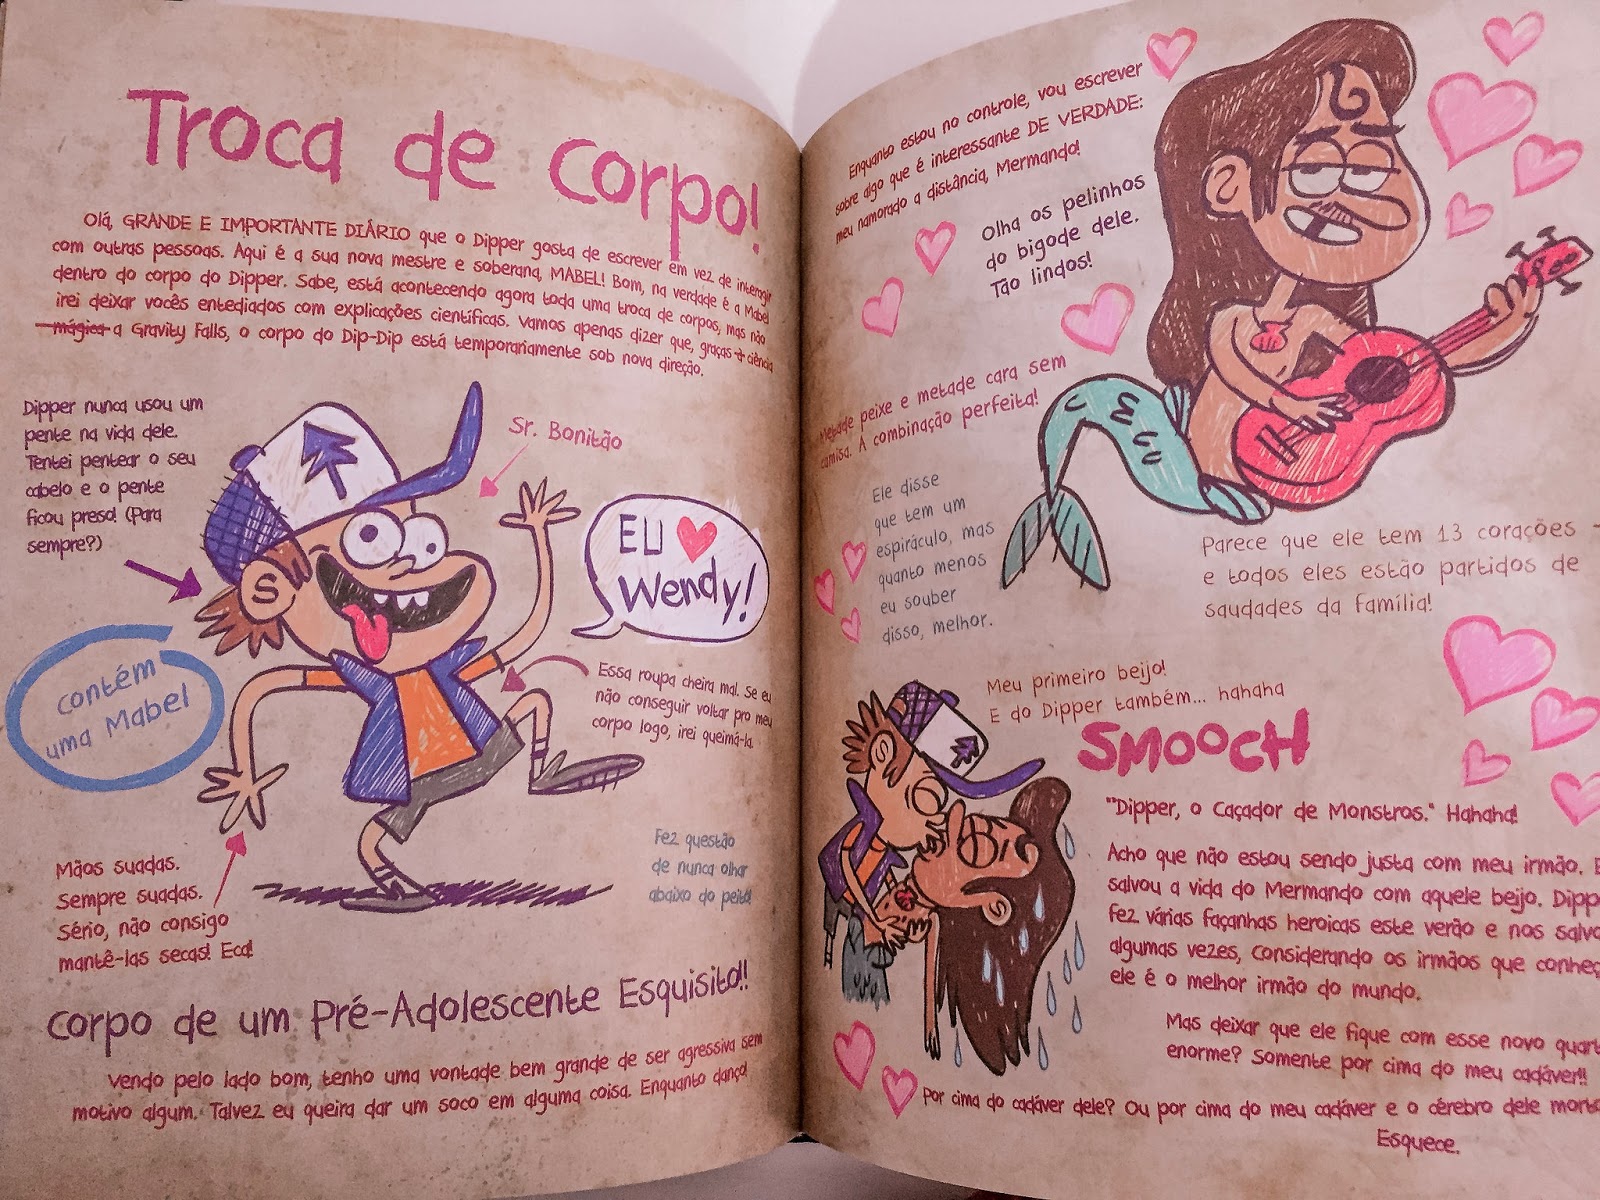 Troca de corpo!
Olá, GRANDE E IMPORTANTE DIÁRIO que o Dipper gosta de escrever em vez de interagir
com outras pessoas. Aqui é a sua nova mestre e soberana, MABEL! Bom, na verdade é a Mabel
dentro do corpo do Dipper. Sabe, está acontecendo agora toda uma troca de corpos, mas não
irei deixar vocês entediados com explicações científicas. Vamos apenas dizer que, graças à ciência
mágica a Gravity Falls, o corpo do Dip-Dip está temporariamente sob nova direção.
Dipper nunca usou um
pente na vida dele.
Tentei pentear o seu
cabelo e o pente
ficou preso! (Para
sempre?)
Sr. Bonitão
EU
Wendy!
contém
uma Mabel
Essa roupa cheira mal. Se eu
não conseguir voltar pro meu
corpo logo, irei queimá-la.
Mãos suadas.
Sempre suadas.
Sério, não consigo
mantê-las secas! Eca!
Fez questão
de nunca olhar
abaixo do peito!
Corpo de um Pré-Adolescente Esquisito!!
Vendo pelo lado bom, tenho uma vontade bem grande de ser agressiva sem
motivo algum. Talvez eu queira dar um soco em alguma coisa. Enquanto danço!
Enquanto estou no controle, vou escrever
sobre algo que é interessante DE VERDADE:
meu namorado a distância, Mermando!
Olha os pelinhos
do bigode dele.
Tão lindos!
Metade peixe e metade cara sem
camisa. A combinação perfeita!
Ele disse
que tem um
espiráculo, mas
quanto menos
eu souber
disso, melhor.
Parece que ele tem 13 corações -
e todos eles estão partidos de
saudades da família!
Meu primeiro beijo!
E do Dipper também... hahaha
SMOOCH
"Dipper, o Caçador de Monstros." Hahaha!
Acho que não estou sendo justa com meu irmão. E
salvou a vida do Mermando com aquele beijo. Dipp
fez várias façanhas heroicas este verão e nos salvo
algumas vezes, Considerando os irmãos que conheç
ele é o melhor irmão do mundo.
Mas deixar que ele fique com esse novo quart
enorme? Somente por cima do meu cadáver!!
Por cima do cadáver dele? Ou por cima do meu cadáver e o cérebro dele morto
Esquece.